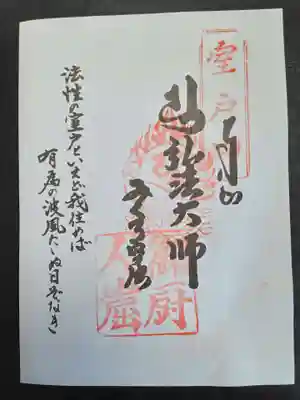 室戸
弘法大師
御厨
人窟
法性の室戸といへど我住めば
有為の波風たゝぬ日ぞなき